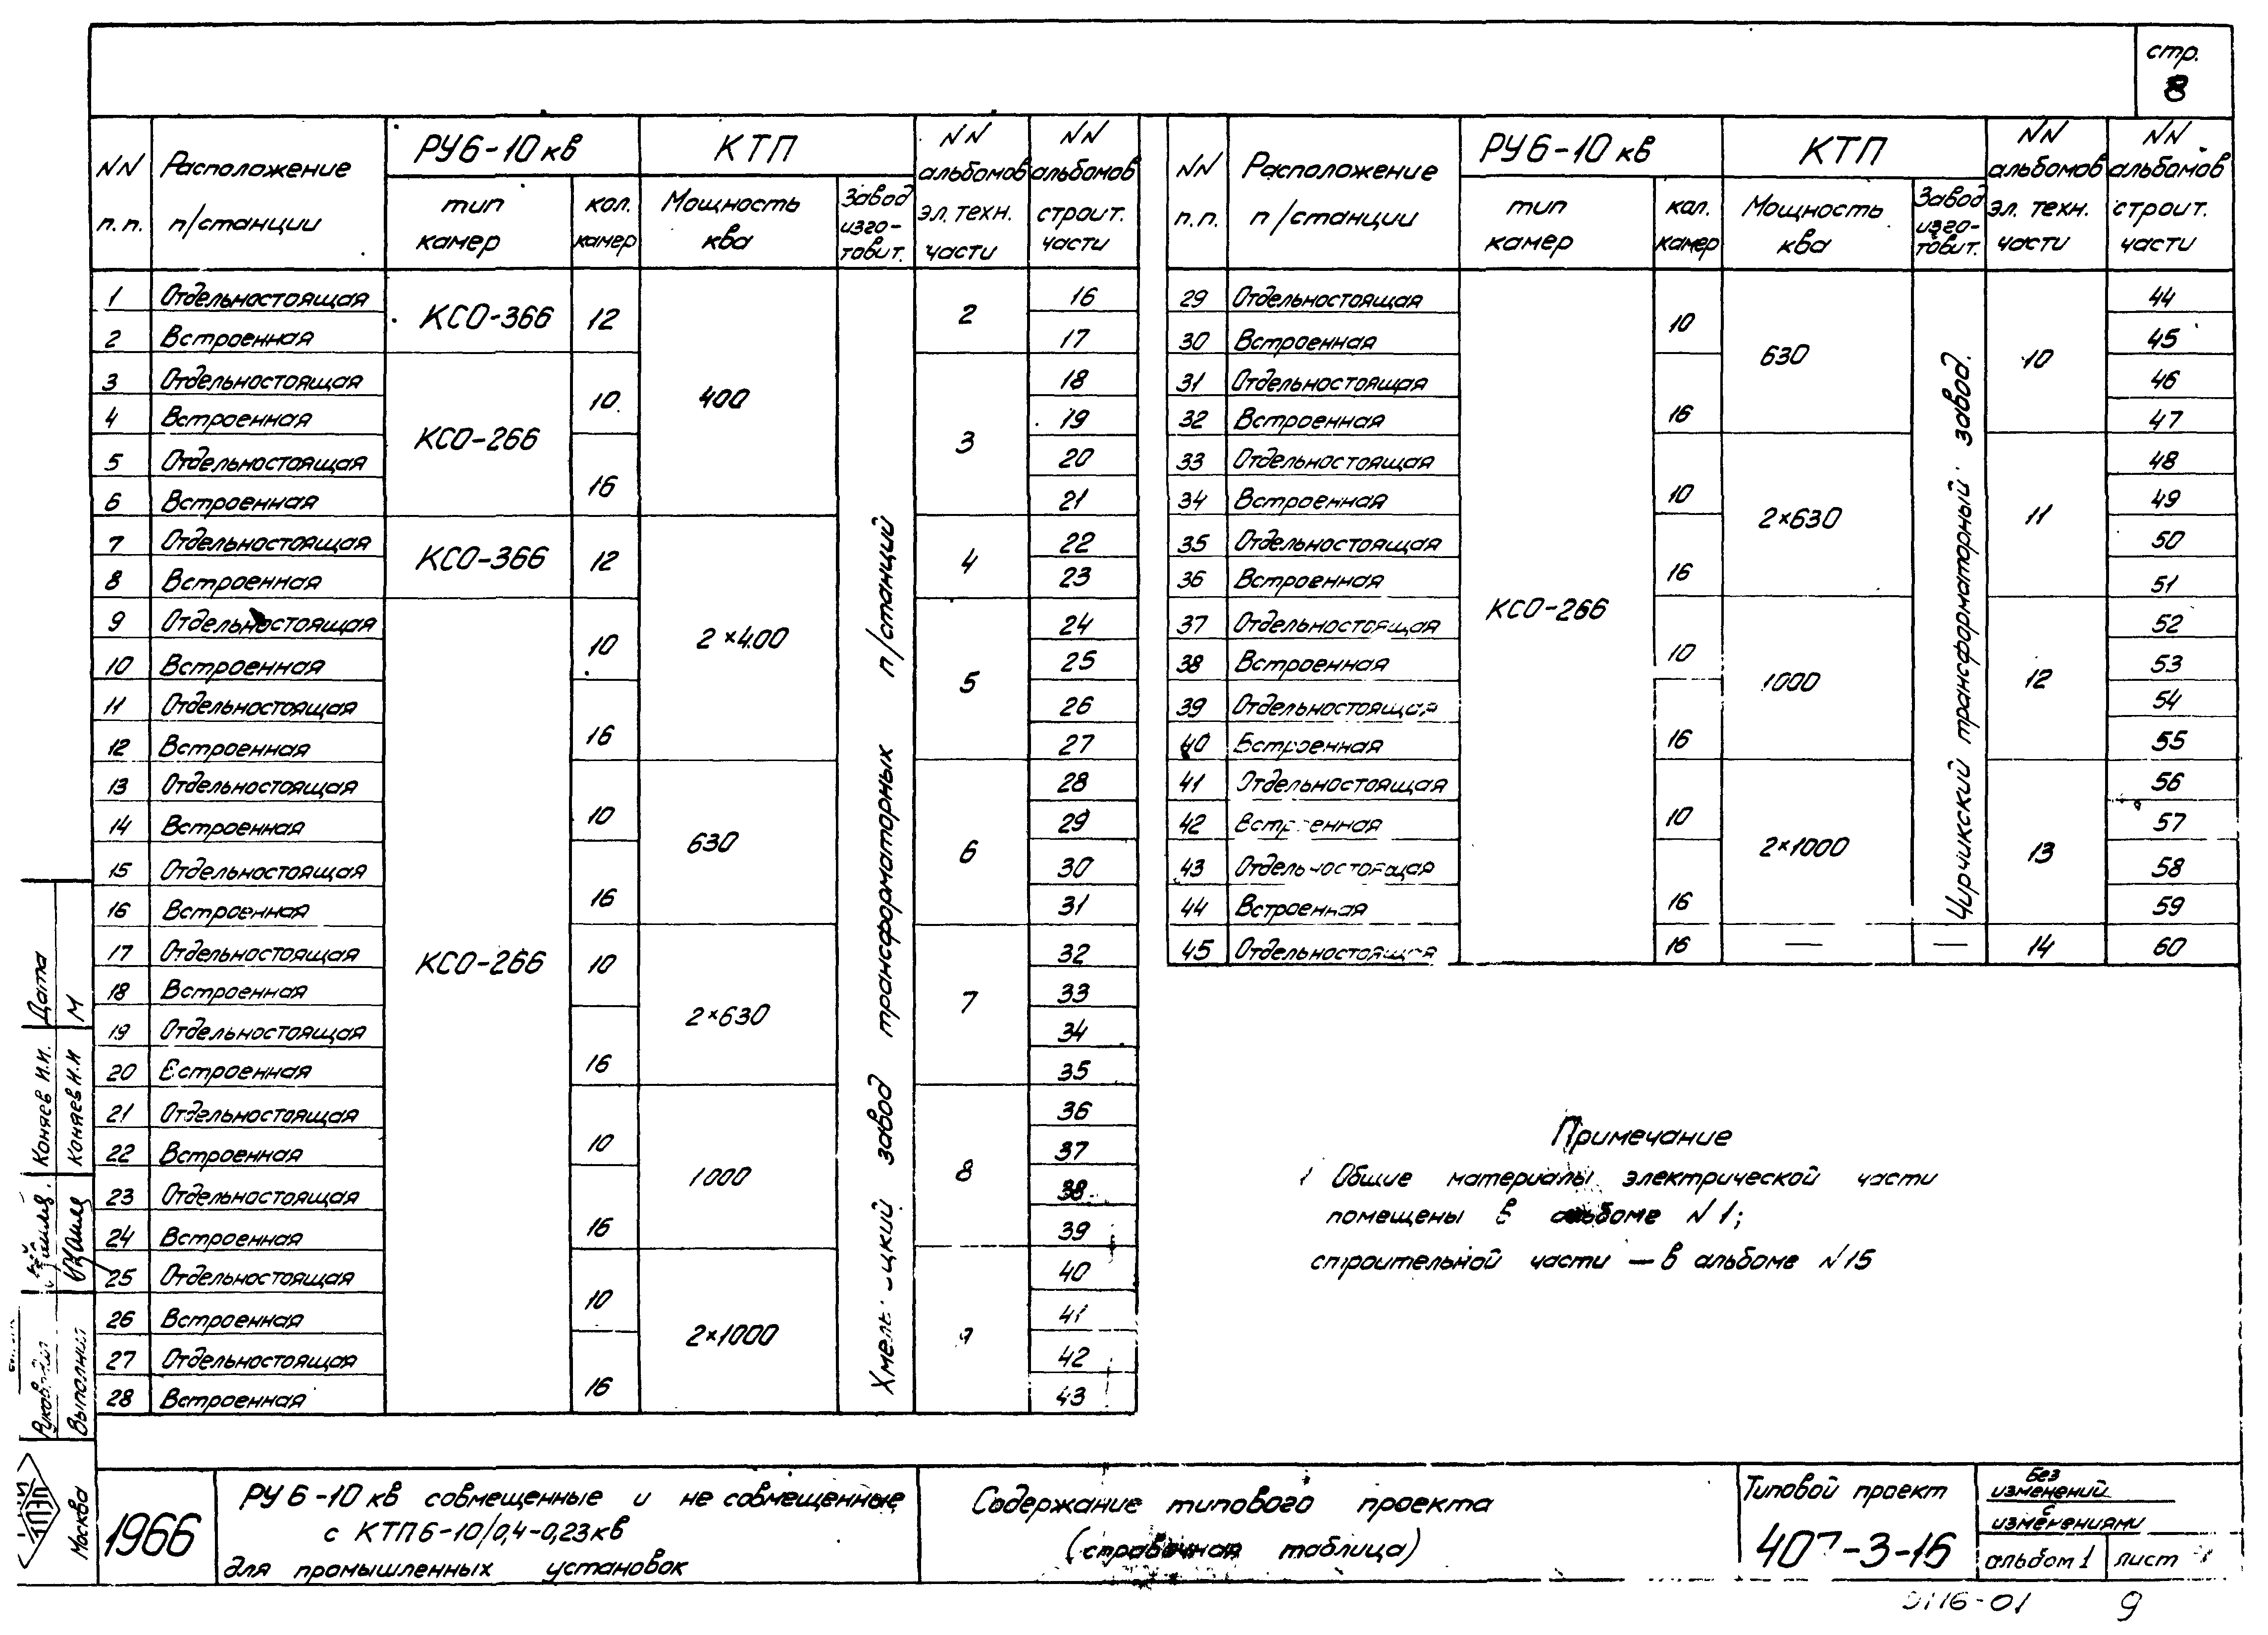 стр.
8
NN п.п. Расположение п/станции РУ6-10кв КТП NN альбомов эл. техн. части NN альбомов строит. части
тип камер кол. камер Мощность ква Завод изго-товит.
1 Отдельностоящая КСО-366 12 400 2 16
2 Встроенная 17
3 Отдельностоящая КСО-266 10 3 18
4 Встроенная 19
5 Отдельностоящая 16 20
6 Встроенная 21
7 Отдельностоящая КСО-366 12 2×400 4 22
8 Встроенная 23
9 Отдельностоящая КСО-266 10 5 24
10 Встроенная 25
11 Отдельностоящая 16 26
12 Встроенная 27
13 Отдельностоящая 10 630 6 28
14 Встроенная 29
15 Отдельностоящая 16 30
16 Встроенная 31
17 Отдельностоящая 10 2×630 7 32
18 Встроенная 33
19 Отдельностоящая 16 34
20 Встроенная 35
21 Отдельностоящая 10 1000 8 36
22 Встроенная 37
23 Отдельностоящая 16 38
24 Встроенная 39
25 Отдельностоящая 10 2×1000 9 40
26 Встроенная 41
27 Отдельностоящая 16 42
28 Встроенная 43
завод трансформаторных п/станций
NN п.п. Расположение п/станции РУ6-10кв КТП NN альбомов эл. техн. части NN альбомов строит. части
тип камер кол. камер Мощность ква Завод изго-товит.
29 Отдельностоящая КСО-266 10 630 10 44
30 Встроенная 45
31 Отдельностоящая 16 46
32 Встроенная 47
33 Отдельностоящая 10 2×630 11 48
34 Встроенная 49
35 Отдельностоящая 16 50
36 Встроенная 51
37 Отдельностоящая 10 1000 12 52
38 Встроенная 53
39 Отдельностоящая 16 54
40 Встроенная 55
41 Отдельностоящая 10 2×1000 13 56
42 Встроенная 57
43 Отдельностоящая 16 58
44 Встроенная 59
45 Отдельностоящая 16 — — 14 60
Чирчикский трансформаторный завод.
Примечание
1 Общие материалы электрической части
помещены в альбоме N1;
строительной части — в альбоме N15
Дата
М
Коняев И.И.
Коняев И.И
Выполнил
ТПЭП
Москва
1966
РУ 6-10 кв совмещенные и не совмещенные
с КТП 6-10/0,4-0,23кв
для промышленных установок
Содержание типового проекта
(справочная таблица)
Типовой проект
407-3-16
Без изменений
с изменениями
альбом 1 лист
9